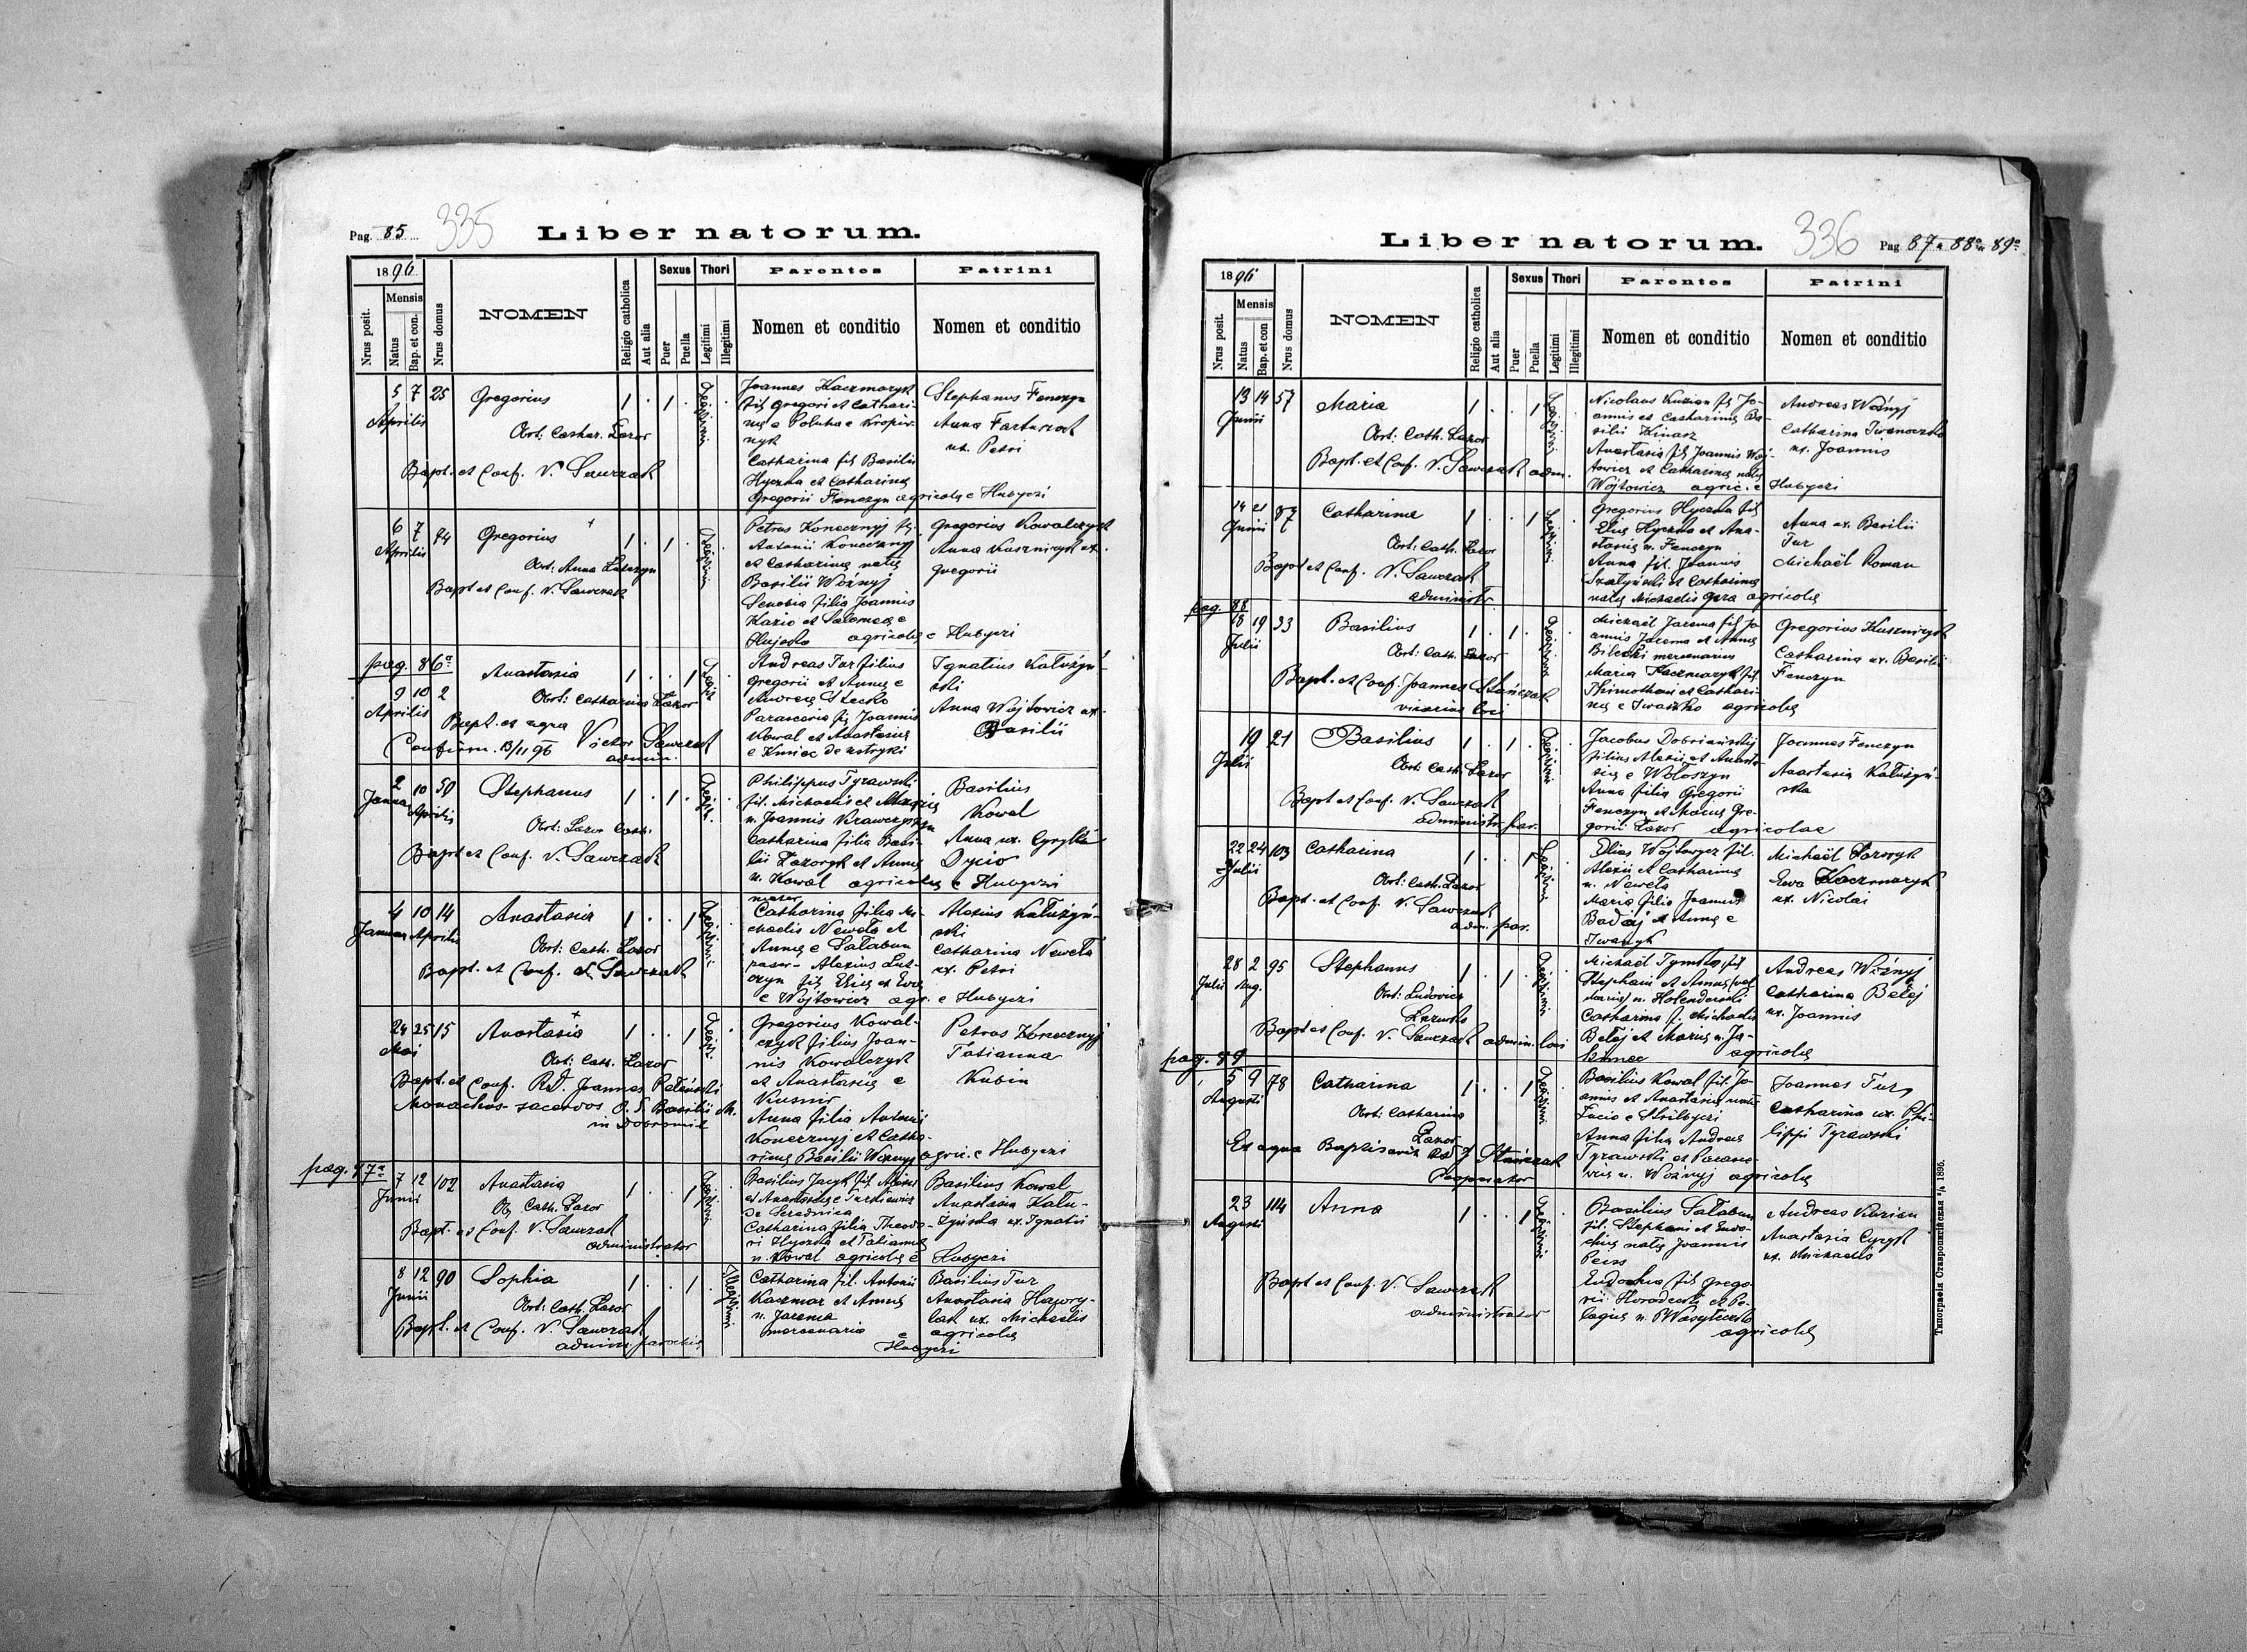 Pag. 85
335
Liber natorum.
1896
Nrus posit.
Mensis
Natus
Bap. et con.
Nrus domus
NOMEN
Religio catholica
Aut alia
Sexus
Puer
Puella
Thori
Legitimi
Illegitimi
Parentes
Nomen et conditio
Patrini
Nomen et conditio
5 7 25
Aprilis
Gregorius
Obst: Cathar. Łazor
Bapt. et Conf. V. Sawczak
1 . 1 .
Legitimi
Joannes Kaczmaryk
fil. Gregori et Cathari-
Catharina fil Basilii
Hyczka et Catharinę
Gregorii Fenczyn agricolę e Hubyczi
Stephanus Fenczyn
Anna
ux. Petri
6 7 74
Aprilis
Gregorius
Obst: Anna
Bapt et Conf. V. Sawczak
1 . 1 .
Legitimi
Petrus Konecznyj fil.
Antonii Konecznyj
et Catharinę natę
Basilii Woźnyj
Senobia filia Joannis
Kazio et Salomeę e
agricolę e Hubyczi
Gregorius Kowalczyk
Anna Kuszniryk ux.
Gregorii
pag. 86a
9 10 2
Aprilis
Anastasia
Obst: Catharina Łazor
Bapt. ex aqua
Confirm. 13/11 96 Victor Sawczak
admin.
1 . . 1
Legit
Andreas Tur filius
Gregorii et Annę e
Andreę Stecko
Parascevia fil Joannis
Kowal et Anastasię
e Kmiec de
Ignatius Kałużyń-
ski
Anna Wojtowicz ux.
Basilii
2 10 50
Januar Aprilis
Stephanus
Obst: Łazor Cath.
Bapt et Conf. V. Sawczak
1 . 1 .
Legit.
Philippus Tyrawski
fil. Michaelis et Marię
n. Joannis Krawczyszyn
Catharina filia Basi-
lii Łazoryk et Annę
n. Kowal agricolę e Hubyczi
Basilius
Kowal
Anna ux. Cyrylli
Dycio
4 10 14
Januar Aprilis
Anastasia
Obst: Cath. Łazor
Bapt. et Conf. V. Sawczak
1 . . 1
Legitimi
mater
Catharina filia Mi-
chaelis Neweła et
Annę e Sałabun
pater - Alexius Lut-
czyn fil Elię et Evę
e Wojtowicz agr. e Hubyczi
Alexius Kałużyń-
ski
Catharina Neweła
ux. Petri
24 25 15
Mai
Anastasia
Obst: Cath. Łazor
Bapt. et Conf. Rd. Joannes
Monachus-sacerdos O. S. Basilii M.
in Dobromil
1 . . 1
Legit.
Gregorius Kowal-
czyk filius Joan-
nis Kowalczyk
et Anastasię e
Kusnir
Anna filia Antonii
Konecznyj et Catha-
rinę Basilii Woźnyj agric. e Hubyczi
Petrus Konecznyj
Tatianna
Kubin
pag. 87a
7 12 102
Junii
Anastasia
Ob. Cath. Łazor
Bapt. et Conf. V. Sawczak
administrator
1 . . 1
Legitimi
Basilius Jacyk fil. Alexii
et Anastasię e Turkiewicz
de Serednica
Catharina filia Theodo-
ri Hyczka et Tatianę
n. Kowal agricolę e Hubyczi
Basilius Kowal
Anastasia Kału-
żyńska ux. Ignatii
8 12 90
Junii
Sophia
Obst: Cath. Łazor
Bapt. et Conf. V. Sawczak
admin. parochię
1 . . 1
Illegitimi
Catharina fil. Antonii
Kaczmar et Annę
n. Jarema
mercenaria
Basilius Tur
Anastasia Hawry-
lak ux. Michaelis
agricolę
e Hubyczi
Liber natorum.
336
Pag 87a 88a 89a
1896
Nrus posit.
Mensis
Natus
Bap. et con
Nrus domus
NOMEN
Religio catholica
Aut alia
Sexus
Puer
Puella
Thori
Legitimi
Illegitimi
Parentes
Nomen et conditio
Patrini
Nomen et conditio
13 14 57
Junii
Maria
Obst: Cath. Łazor
Bapt. et Conf. V. Sawczak adm.
1 . . 1
Legitimi
Nicolaus Kuzian fil Jo-
annis et Catharinę Ba-
silii Kinasz
Anastasia fil Joannis Woj-
towicz et Catharinę natę
Wojtowicz agric. e Hubyczi
Andreas Woźnyj
Catharina Iwanoczko
ux. Joannis
14 21 87
Junii
Catharina
Obst: Cath. Łazor
Bapt et Conf. V. Sawczak
administr.
1 . . 1
Legitimi
Gregorius Hyczka fil
Elię Hyczka et Ana-
stasię n. Fenczyn
Anna fil. Joannis
et Catharinę
natę Michaelis agricolę
Anna ux. Basilii
Tur
Michaël Roman
pag. 88
18 19 33
Julii
Basilius
Obst: Cath. Łazor
Bapt. et Conf. Joannes Stańczak
vicarius loci
1 . 1 .
Legitimi
Michaël Jarema fil Jo-
annis Jarema et Annę
Bilecki mercenarius
Maria Kaczmaryk fil
Thimothei et Cathari-
nę e Iwaszko agricolę
Gregorius Kuszniryk
Catharina ux. Basilii
Fenczyn
19 21
Julii
Basilius
Obst: Cath. Łazor
Bapt et Conf. V. Sawczak
administr. par.
1 . 1 .
Legitimi
Jacobus Dobriańskij
filius Alexii et Anasta-
się e Wołoszyn
Anna filia Gregorii
Fenczyn et Marię Gre-
gorii Łazor agricolae
Joannes Fenczyn
Anastasia Kałużyń-
ska
22 24 103
Julii
Catharina
Obst: Cath. Łazor
Bapt. et Conf. V. Sawczak
adm. par.
1 . . 1
Legitimi
Elias Wojtowycz fil.
Alexii et Catharinę
n. Neweła
Maria filia Joannis
Badaj et Annę e
Iwanyk
Michaël Łazoryk
Ewa Kaczmaryk
ux. Nicolai
28 2 95
Julii Aug.
Stephanus
Obst: Ludovica
Bapt et Conf. V. Sawczak admin. loci
1 . 1 .
Legitimi
Michaël Tymko fil
Stephani et Annę
n. Holenderski
Catharina f. Michaelis
Bełej et Marię n. Ja-
agricolę
Andreas Woźnyj
Catharina Bełej
ux. Joannis
pag. 89
5 9 78
Augusti
Catharina
Obst: Catharina
Łazor
Ex aqua Baptisavit Rd J Stańczak
Cooperator
1 . . 1
Legitimi
Basilius Kowal fil. Jo-
annis et Anastasię natę
Anna filia Andreę
Tyrawski et Parasce-
vię n. Woźnyj agricolę
Joannes Tur
Catharina ux. Phi-
lippi Tyrawski
23 114
Augusti
Anna
Bapt et Conf. V. Sawczak
administrator
1 . . 1
Legitimi
Basilius Sałabun
fil. Stephani et Eudo-
chię natę Joannis
Eudochia fil Grego-
rii Horodecki et Pe-
lagię n. Wasyłeczko
agricolę
Andreas Kuzian
Anastasia
ux. Michaelis
Типографія Ставропигійская 1895.